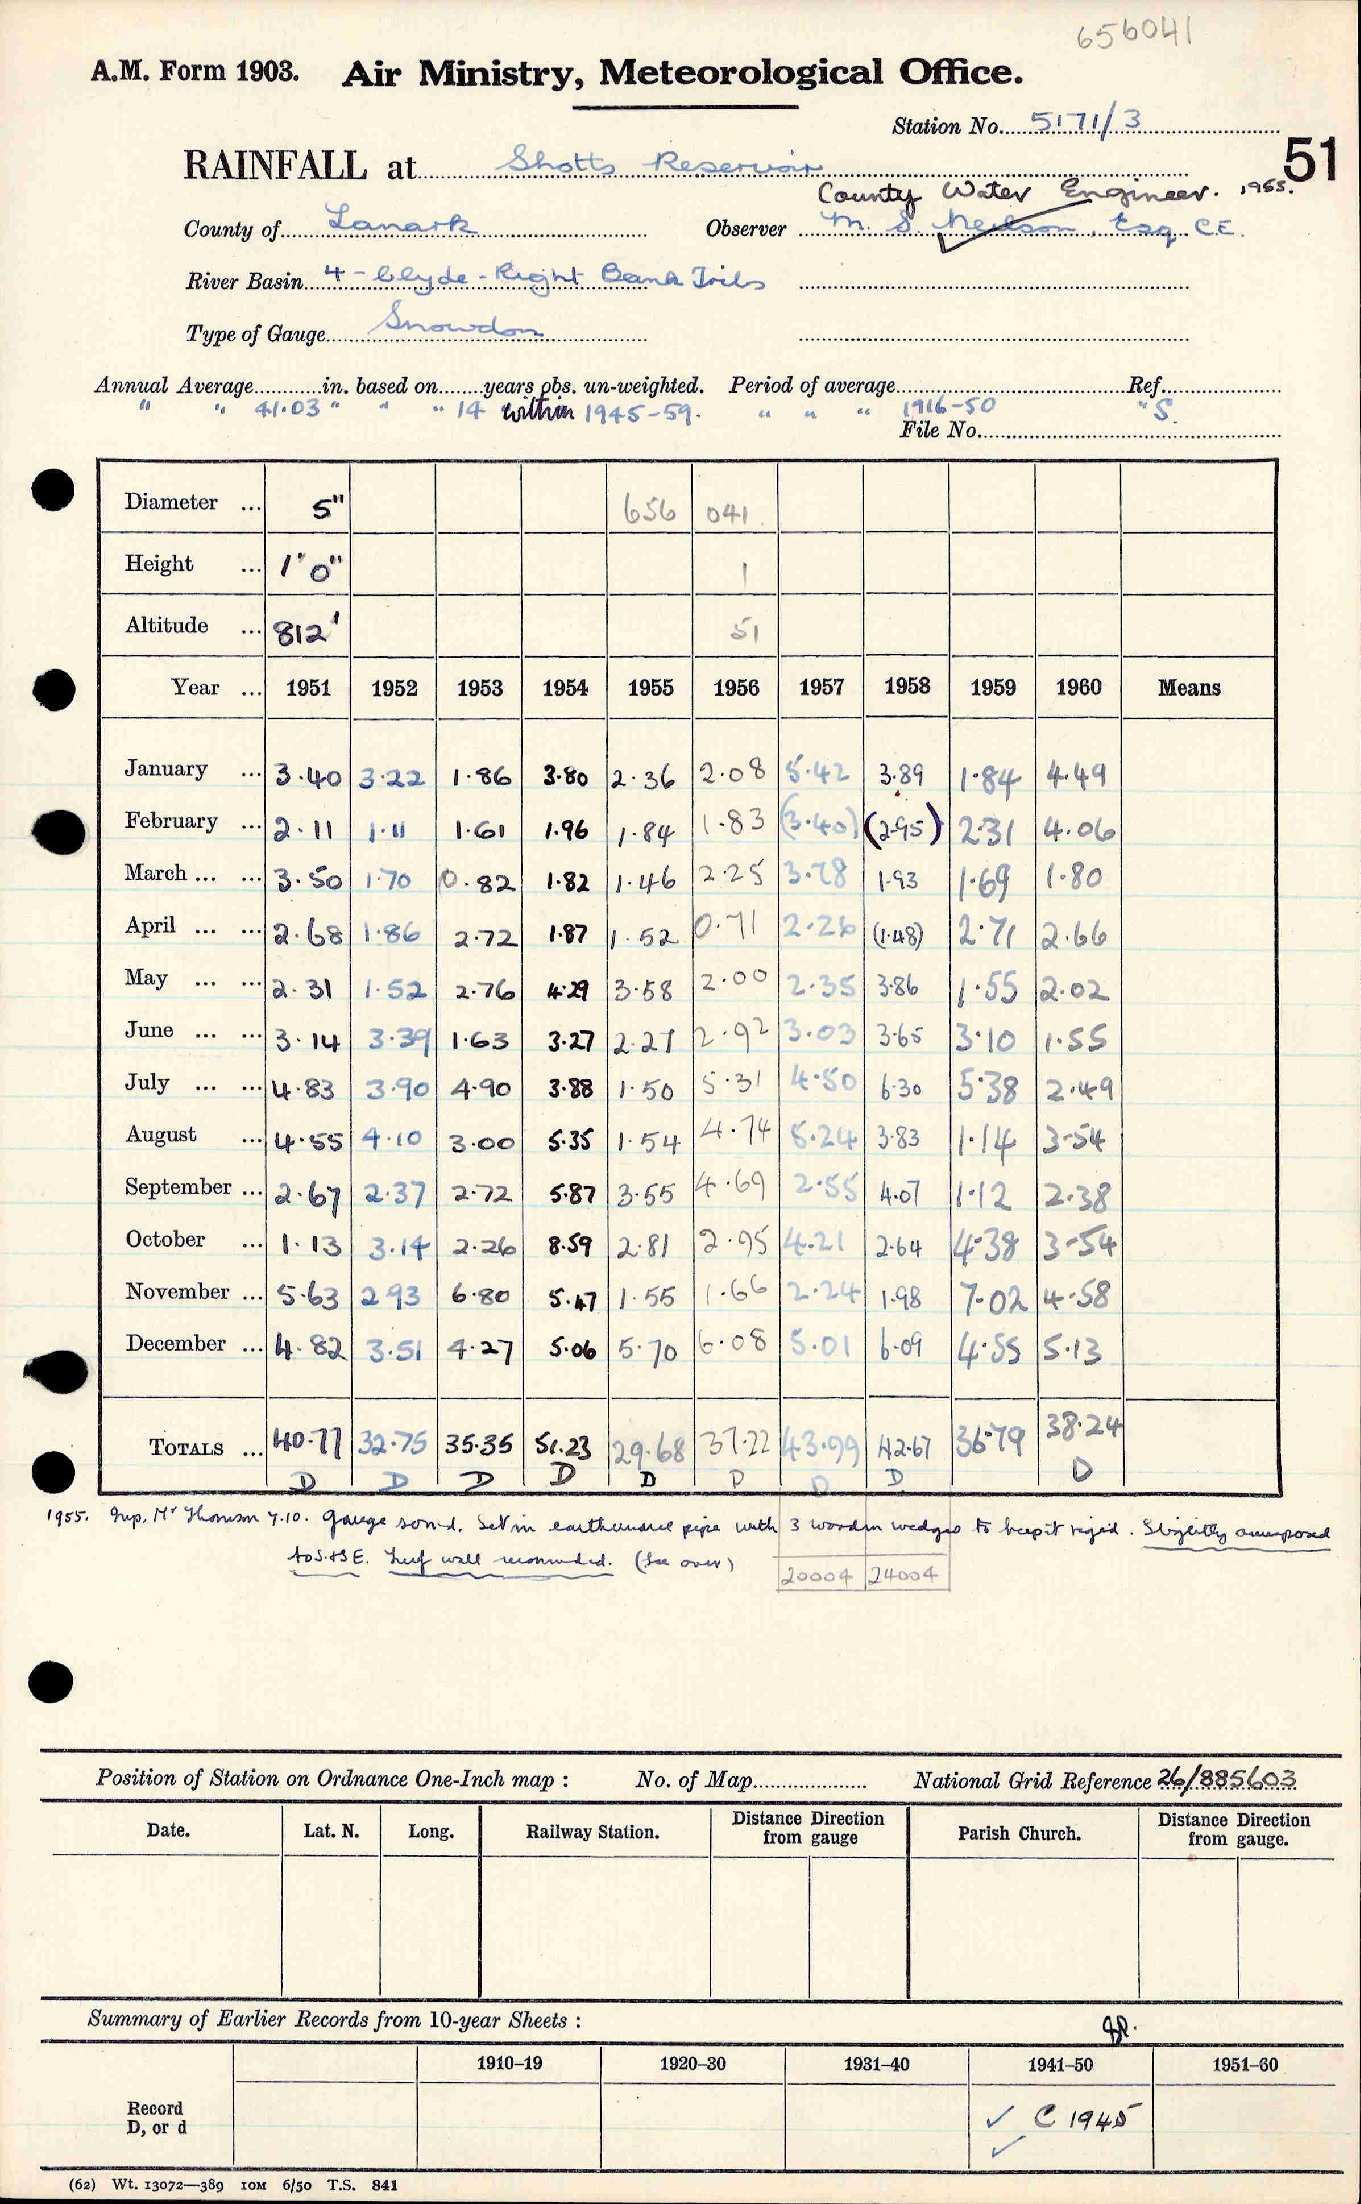 656041
A.M. Form 1903. Air Ministry, Meteorological Office.
Station No. 5171/3
51
RAINFALL at Shotts Reservoir
County Water Engineer. 1953.
County of Lanark Observer M. S. Neilson, Esq. C.E.
River Basin 4 - Clyde - Right Bank Tribs
Type of Gauge Snowdon
Annual Average in. based on years obs. un-weighted. Period of average Ref.
" " 41.03 " " " 14 within 1945-59. " " " 1916-50 " S.
File No.
Diameter ... 5" 656 041
Height ... 1' 0" 1
Altitude ... 812' 51
Year ... 1951 1952 1953 1954 1955 1956 1957 1958 1959 1960 Means
January ... 3.40 3.22 1.86 3.80 2.36 2.08 5.42 3.89 1.84 4.49
February ... 2.11 1.11 1.61 1.96 1.84 1.83 (3.40) (2.95) 2.31 4.06
March ... ... 3.50 1.70 0.82 1.82 1.46 2.25 3.78 1.93 1.69 1.80
April ... ... 2.68 1.86 2.72 1.87 1.52 0.71 2.26 (1.48) 2.71 2.66
May ... ... 2.31 1.52 2.76 4.29 3.58 2.00 2.35 3.86 1.55 2.02
June ... ... 3.14 3.39 1.63 3.27 2.27 2.92 3.03 3.65 3.10 1.55
July ... ... 4.83 3.90 4.90 3.88 1.50 5.31 4.50 6.30 5.38 2.49
August ... 4.55 4.10 3.00 5.35 1.54 4.74 5.24 3.83 1.14 3.54
September ... 2.67 2.37 2.72 5.87 3.55 4.69 2.55 4.07 1.12 2.38
October ... 1.13 3.14 2.26 8.59 2.81 2.95 4.21 2.64 4.38 3.54
November ... 5.63 2.93 6.80 5.47 1.55 1.66 2.24 1.98 7.02 4.58
December ... 4.82 3.51 4.27 5.06 5.70 6.08 5.01 6.09 4.55 5.13
TOTALS ... 40.77 32.75 35.35 51.23 29.68 37.22 43.99 42.67 36.79 38.24
D D D D D D D D D
1955. Insp. Mr Thomson 7.10. Gauge sound. Set in earthenware pipe with 3 wooden wedges to keep it rigid. Slightly overexposed
to S. & SE. Turf wall recommended. (See over) 20004 24004
Position of Station on Ordnance One-Inch map : No. of Map National Grid Reference 26/885603
Date. Lat. N. Long. Railway Station. Distance from gauge Direction Parish Church. Distance from gauge. Direction
Summary of Earlier Records from 10-year Sheets :
1910-19 1920-30 1931-40 1941-50 1951-60
Record D, or d ✓ C 1945
✓
(62) Wt. 13072—389 10M 6/50 T.S. 841